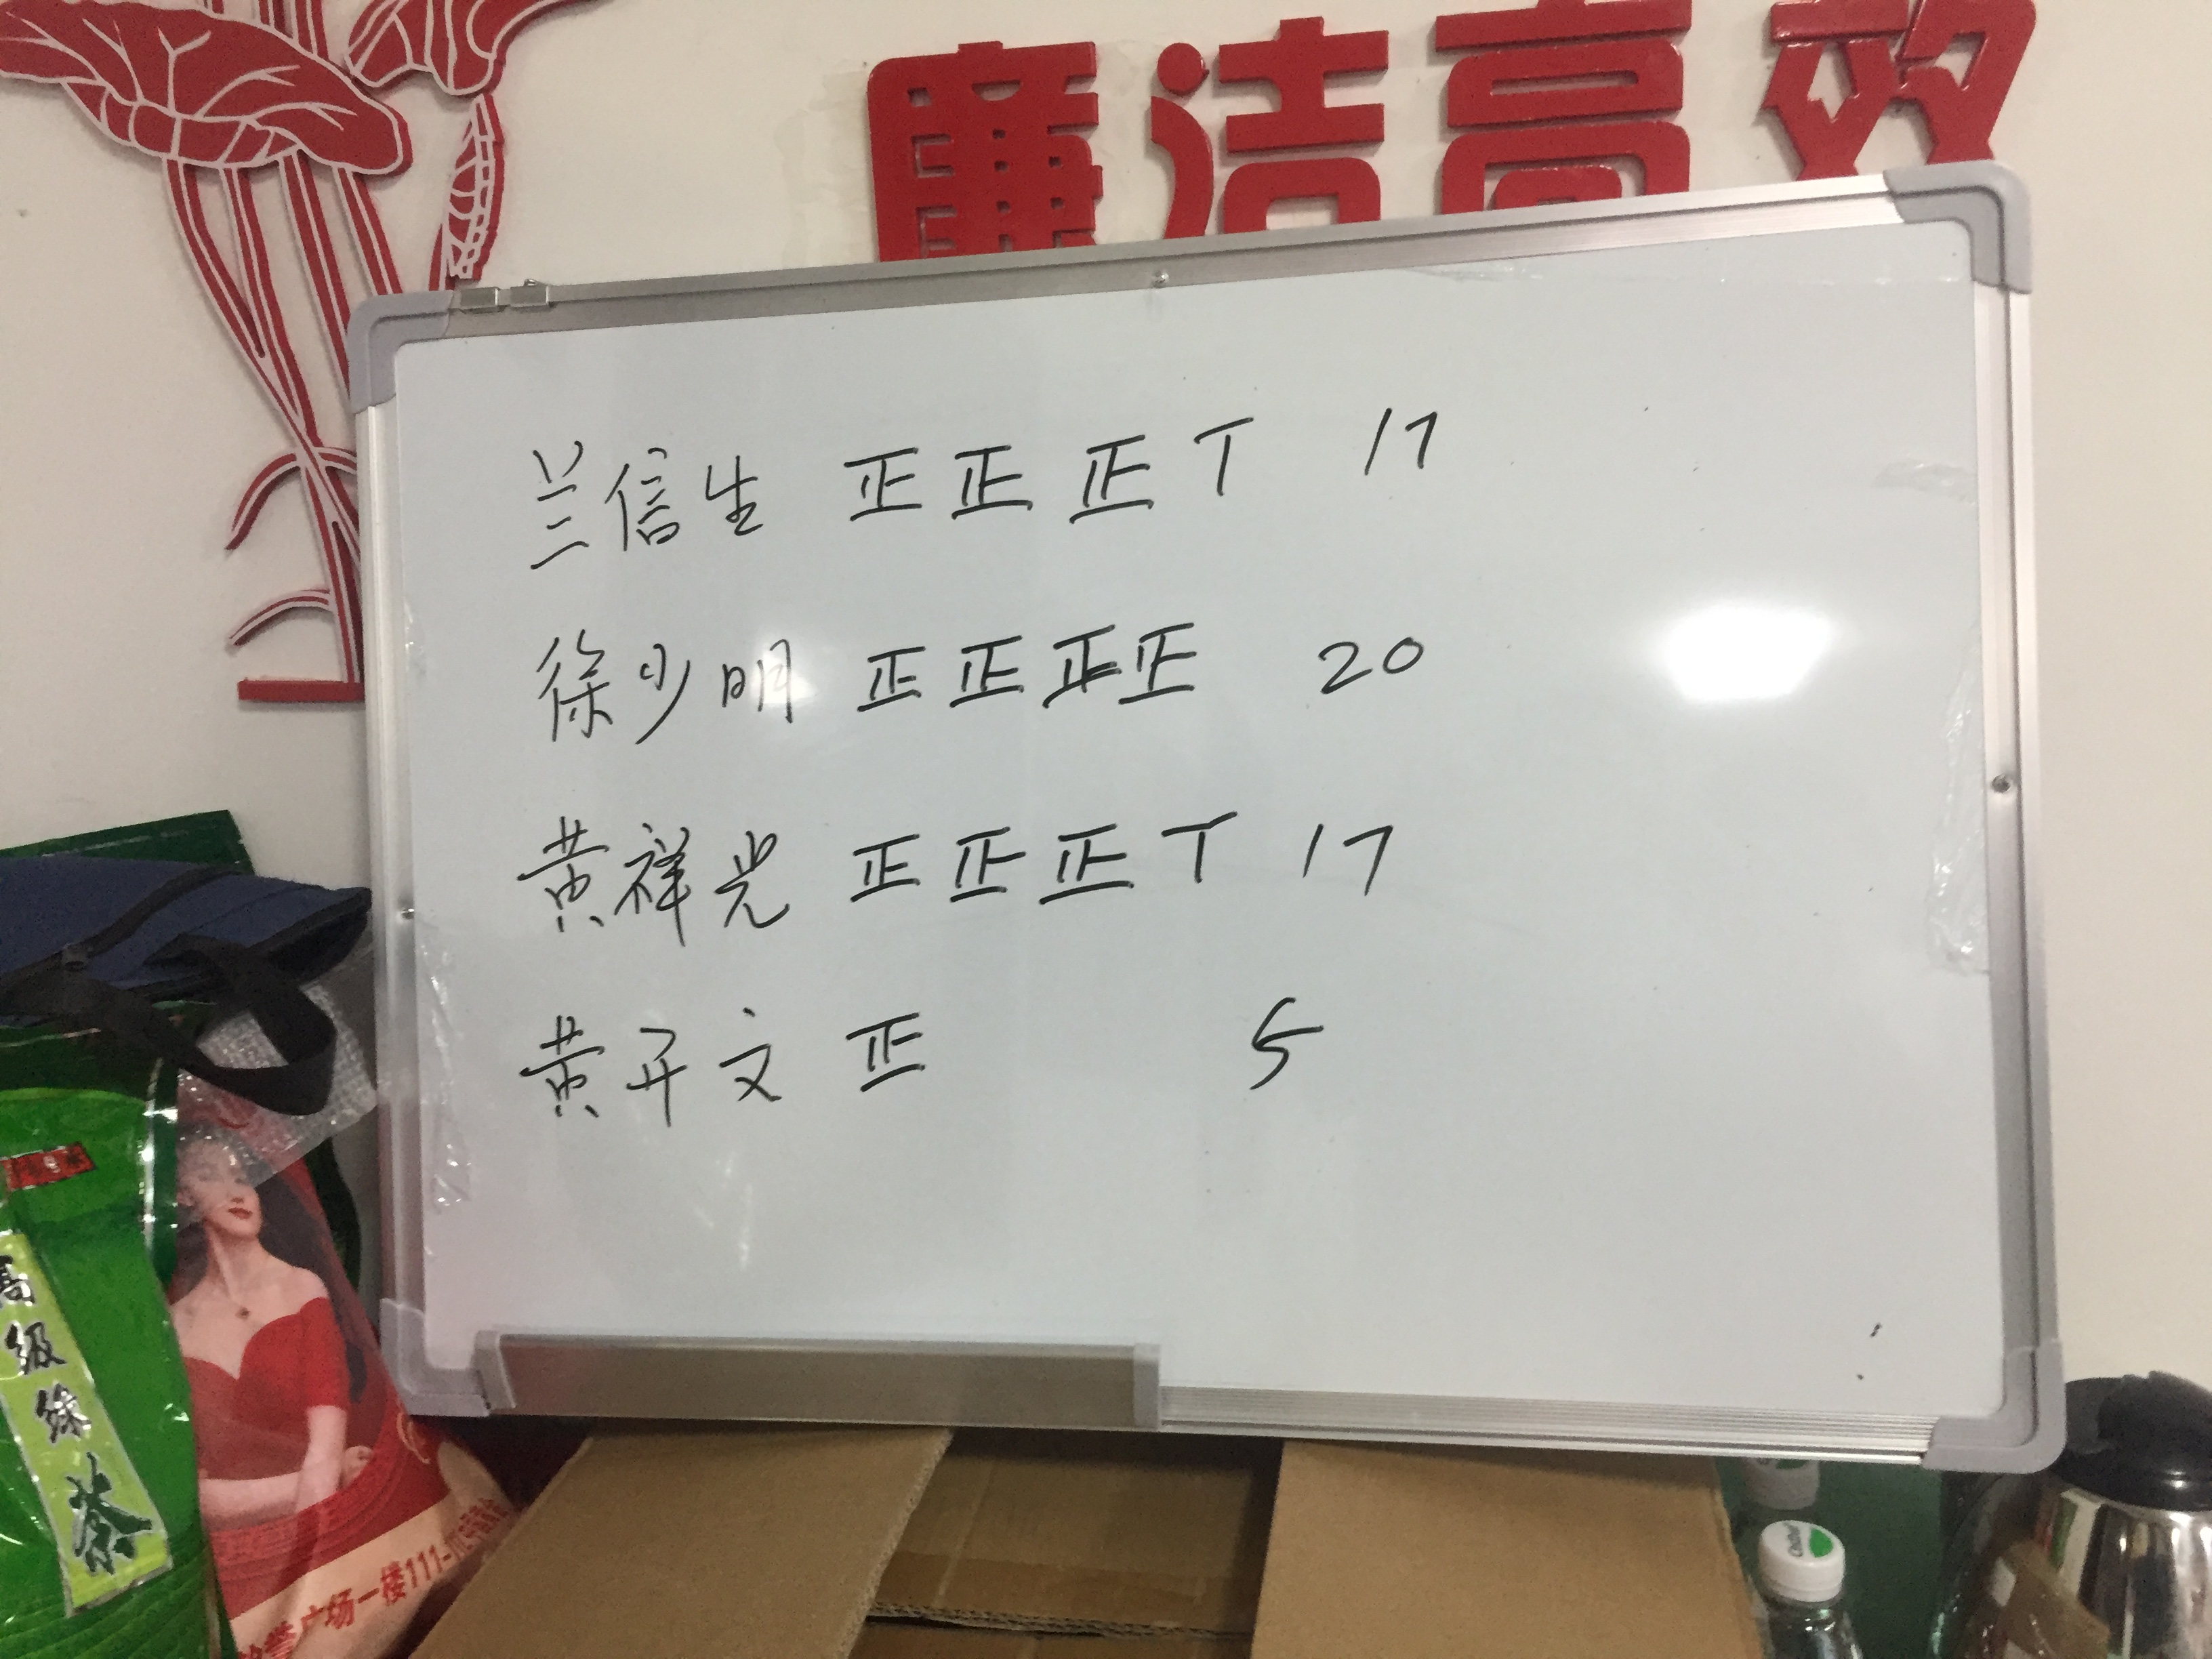 廉洁高效
兰信生 正正正丅 17
徐少明 正正正正 20
黄祥光 正正正丅 17
黄开文 正 5
高级绿茶
广场一楼111-